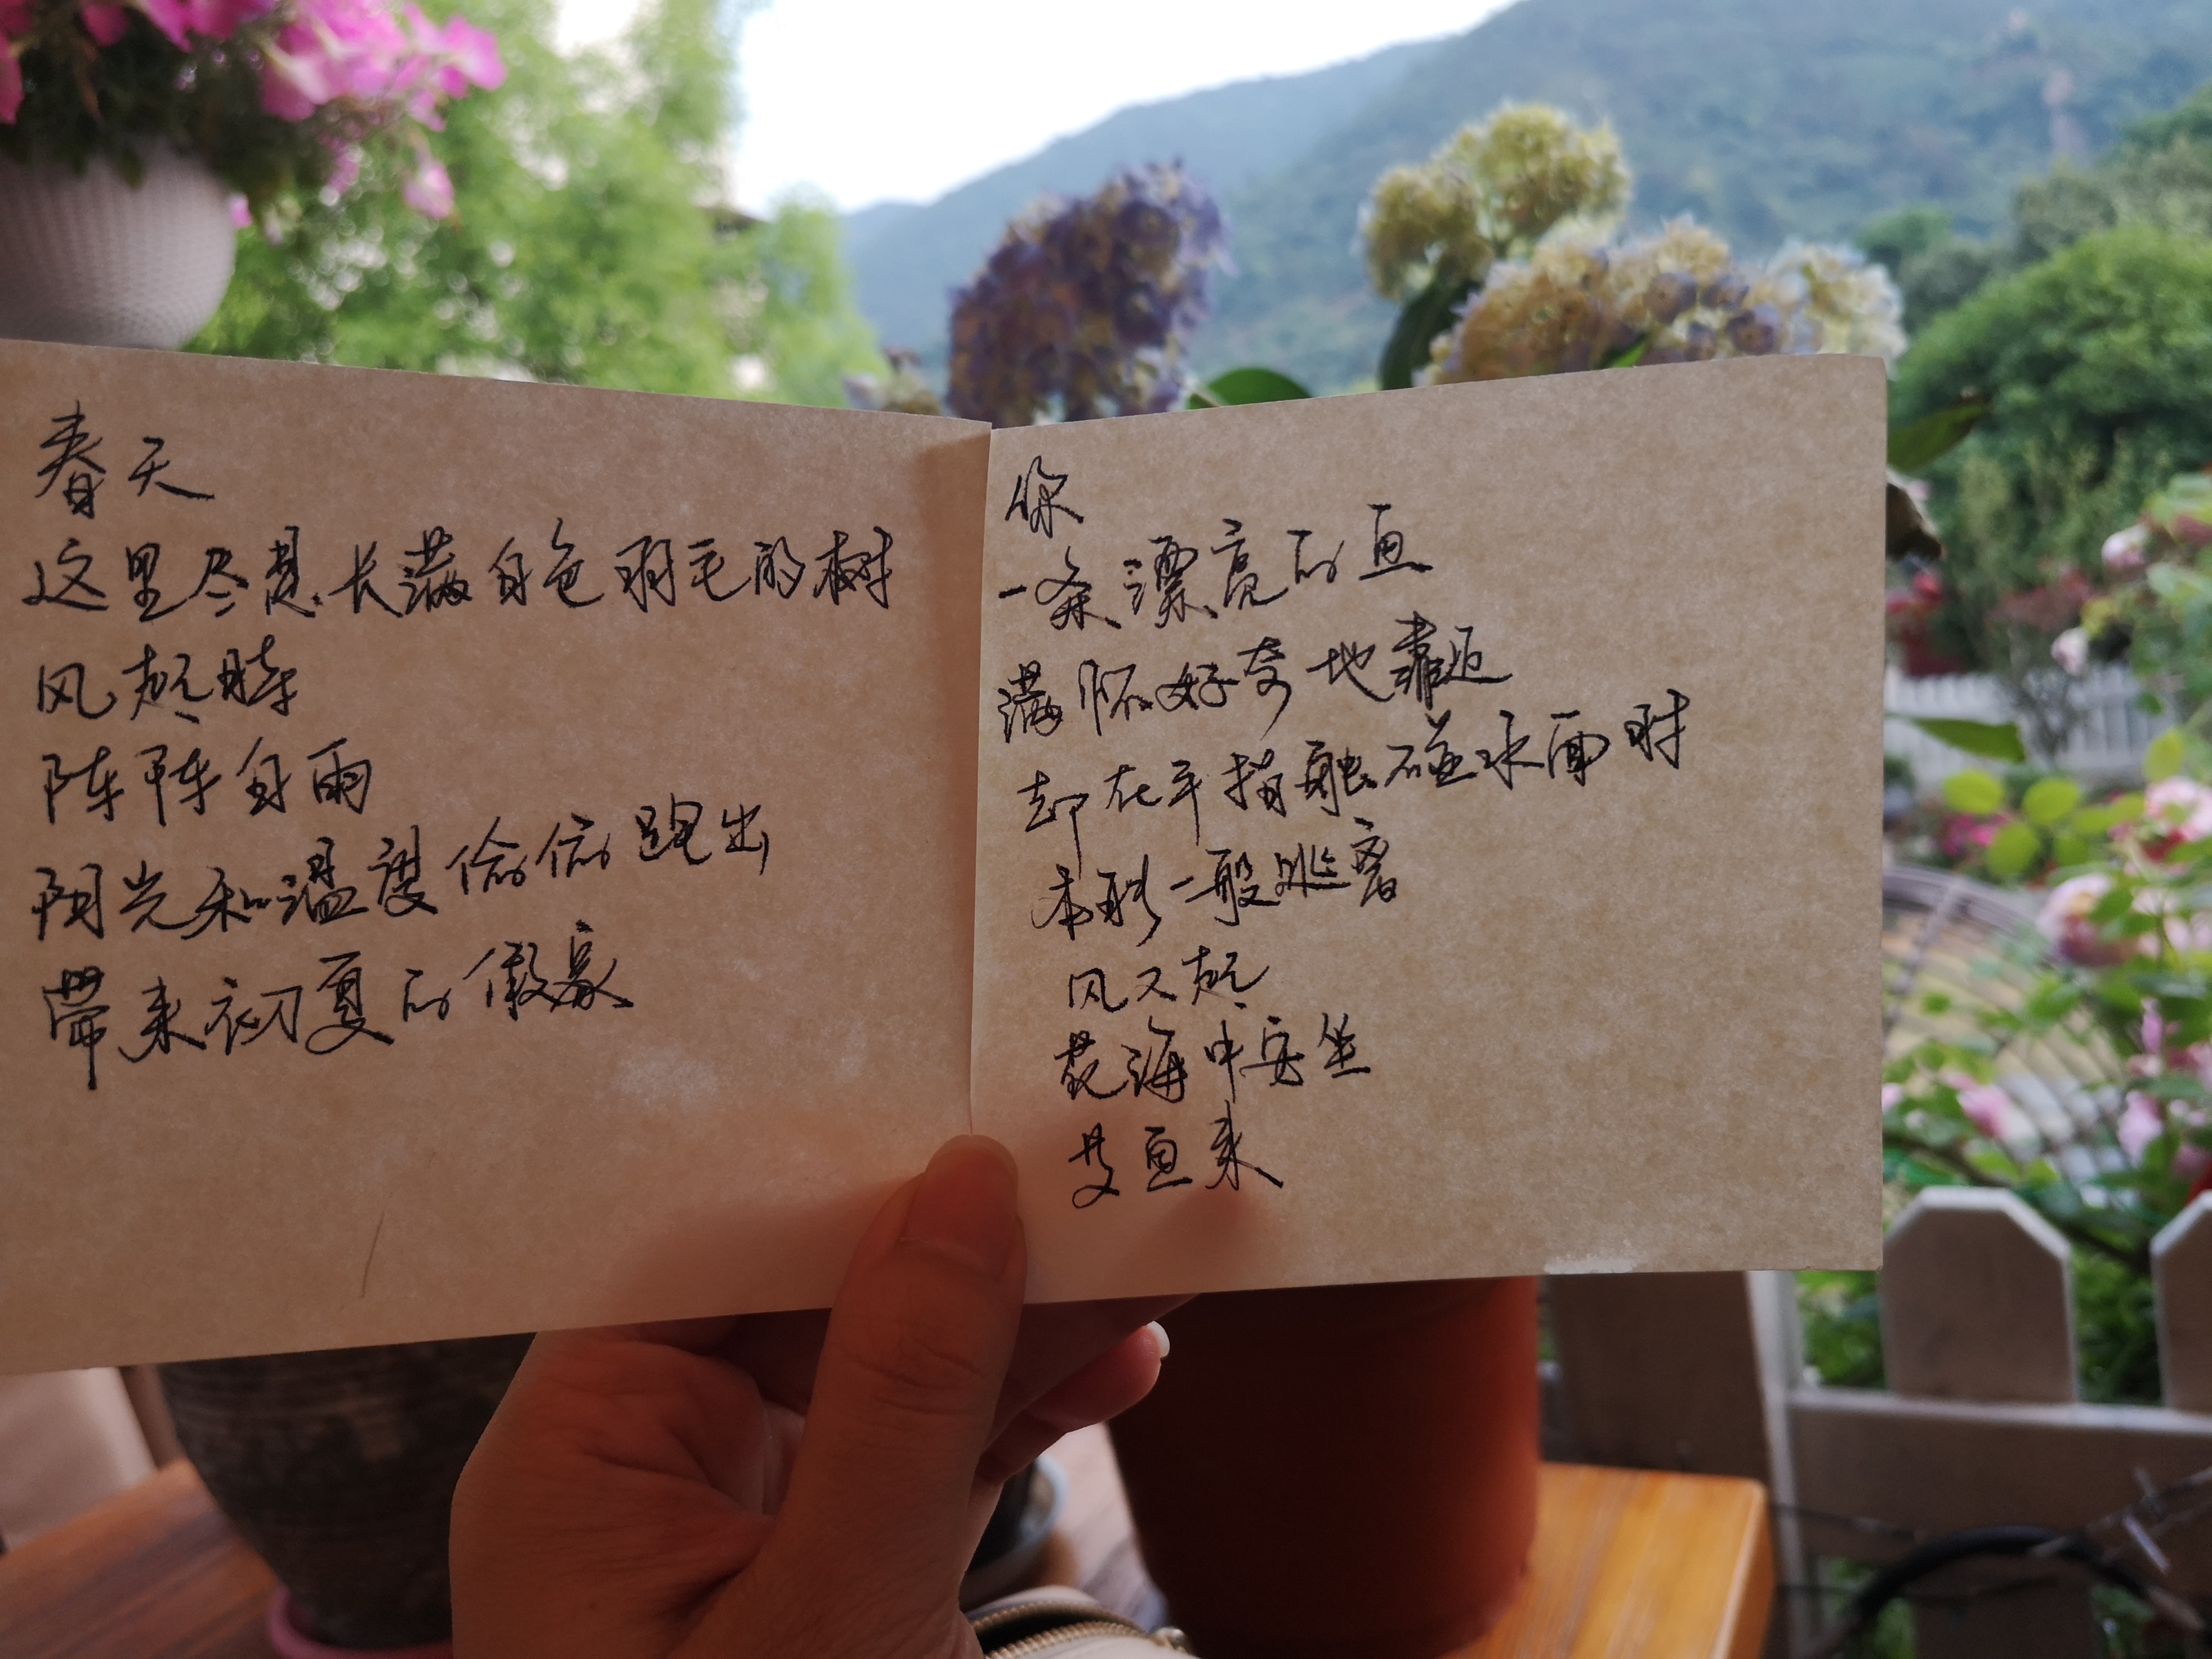 春天
这里尽是长满白色羽毛的树
风起时
阵阵白雨
阳光和温度偷偷跑出
带来初夏的假象
你
一条漂亮的鱼
满怀好奇地靠近
却在手指触碰水面时
本能一般逃离
风又起
花海中安坐
鱼来